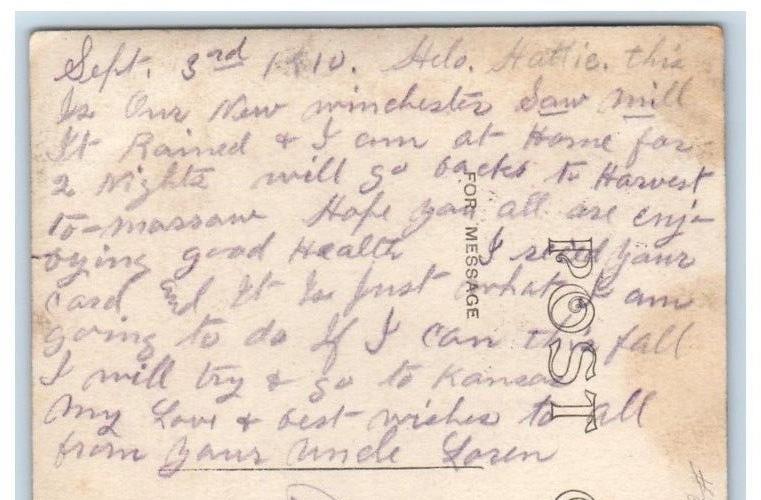 Sept. 3rd 1910. Helo. Hattie. this
Is Our New winchester Saw mill
It Rained & I am at Home for
2 Nights will go backs to Harvest
to-morrow Hope you all are enj-
oying good Health I your
Card and It Is Just what I am
going to do If I can this fall
I will try & go to Kansas
My Love & best wishes to all
from your uncle Loren
FOR MESSAGE
POST